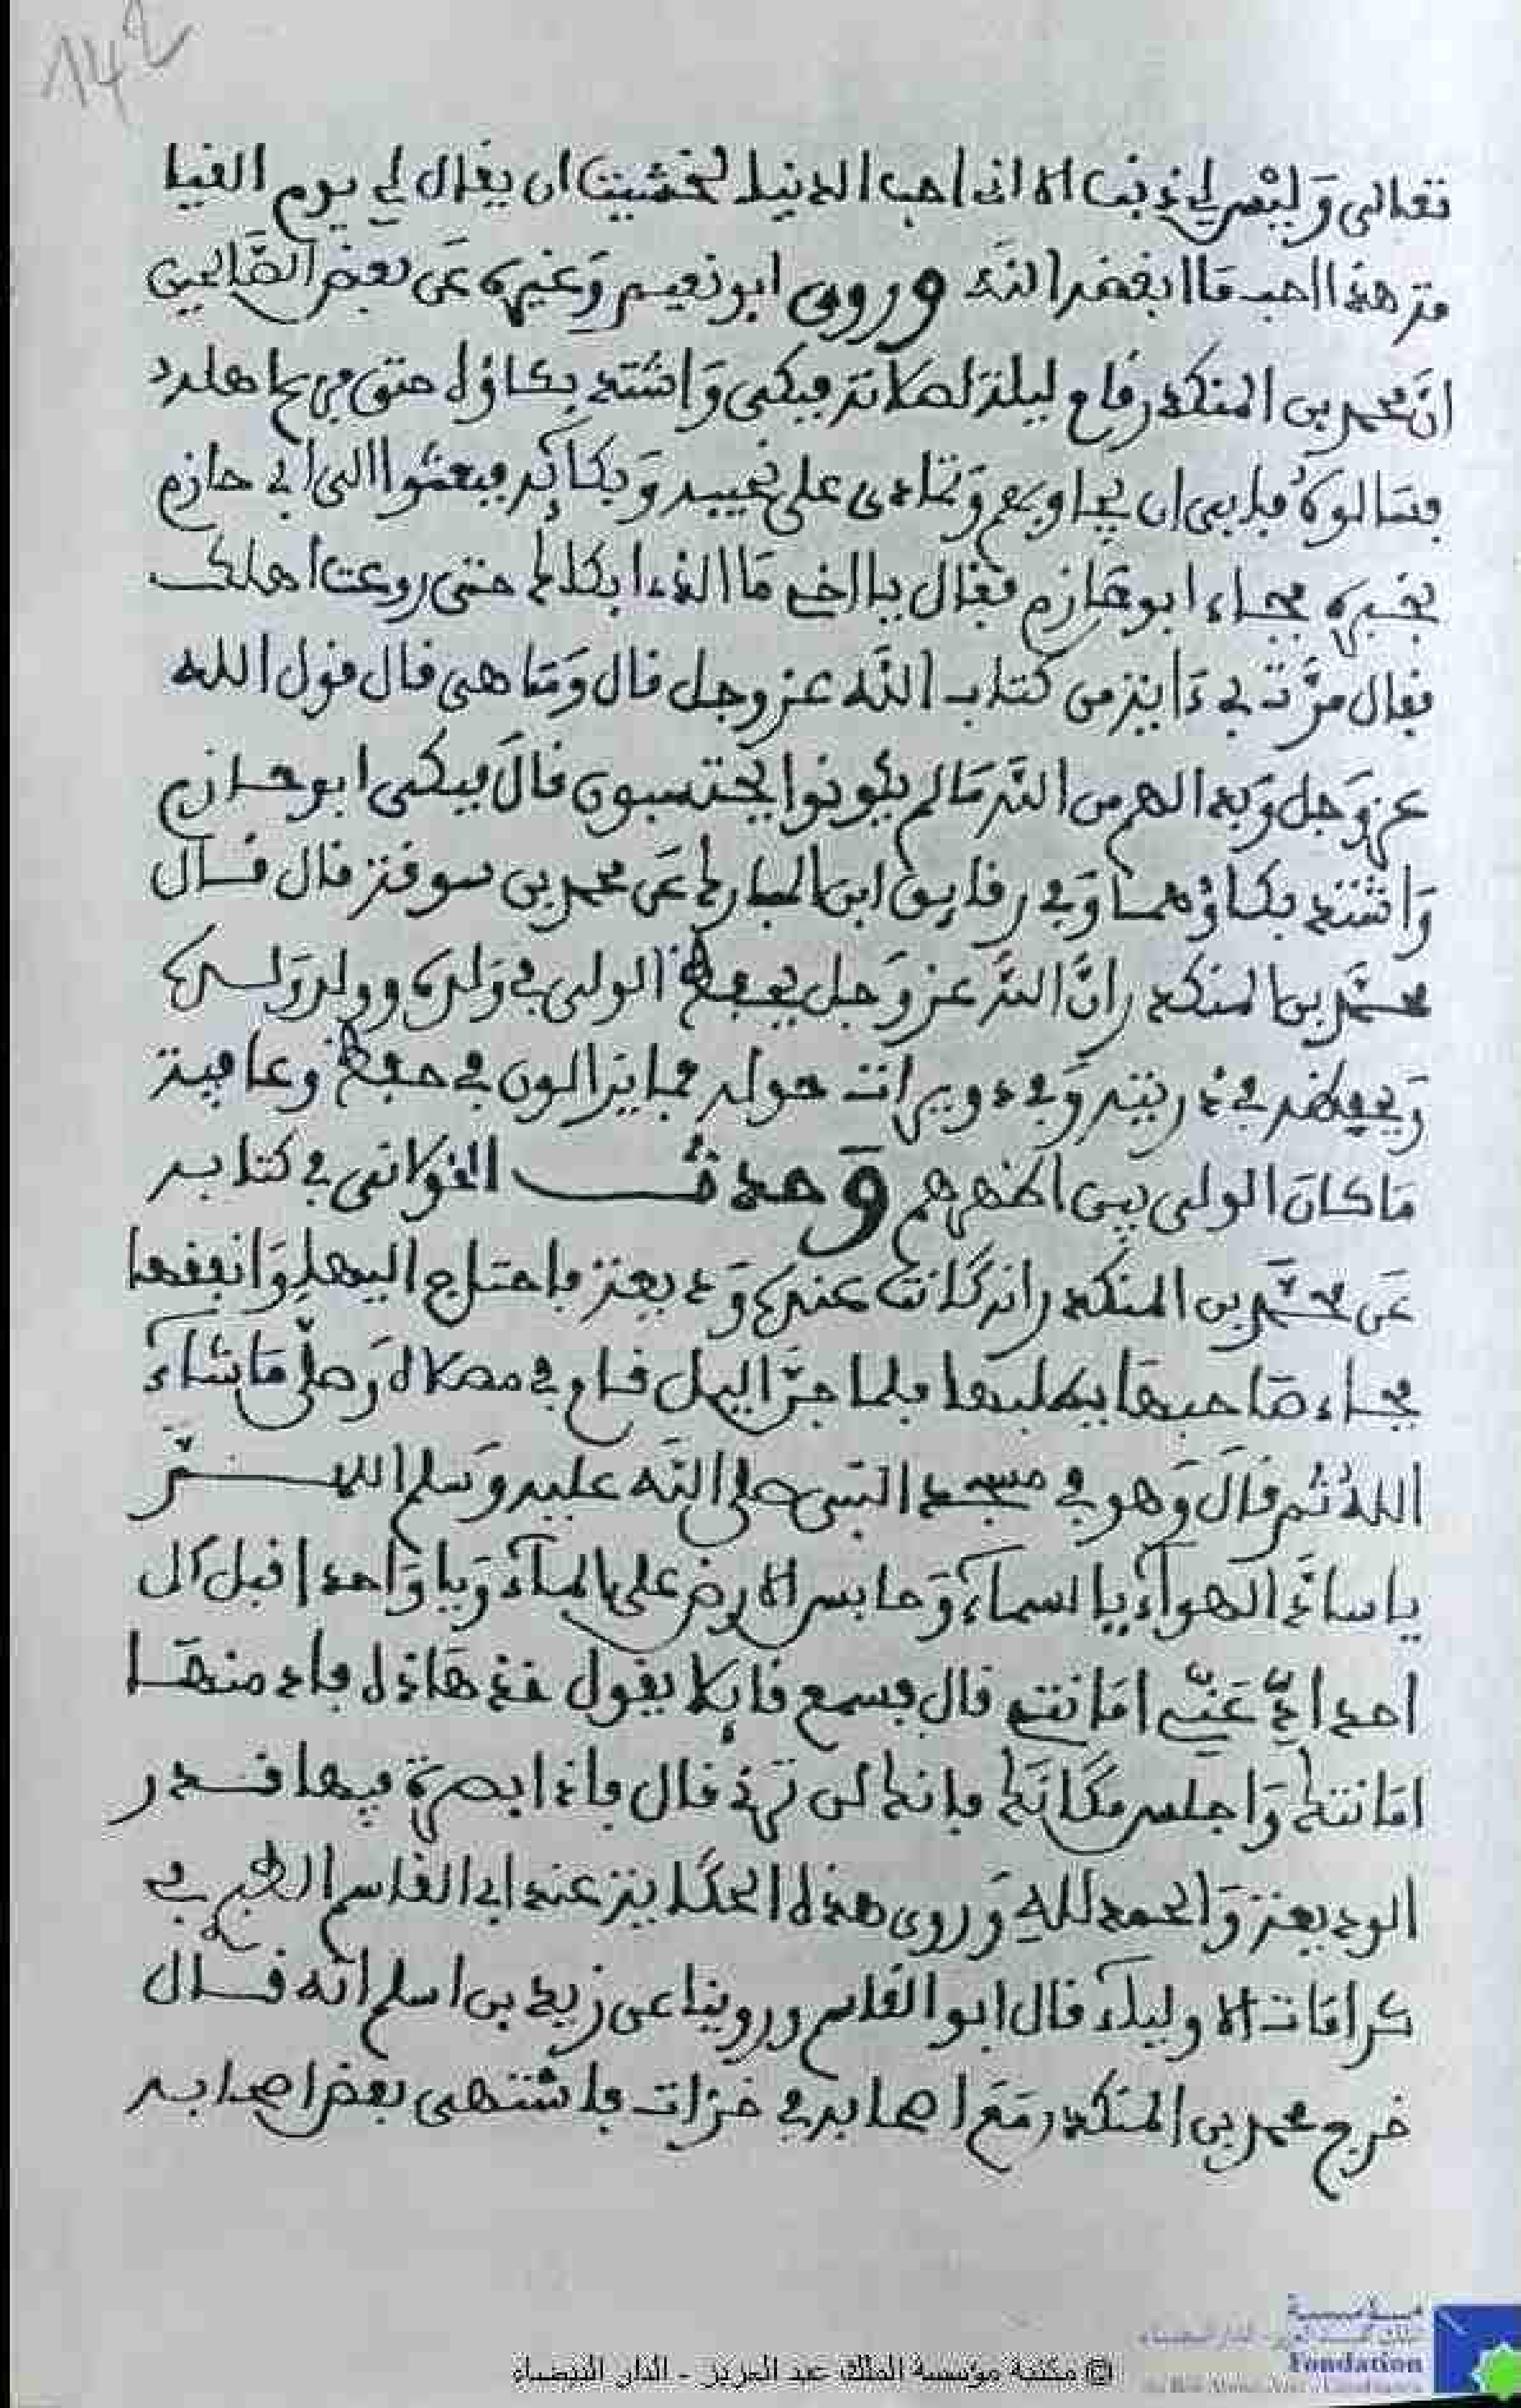 142
تعالى وليس لي ذنب الا اني احب الدنيا لخشيت ان يقال لي يوم القيا
مة هذا احب ما ابغض الله وروى ابو نعيم وغيره عن بعض الصالحين
انّ محمد بن المنكدر قام ليلة لصلاته فبكى واشتد بكاؤه حتى فزع اهله
فسالوه فابى ان يجاوبهم وتمادى على نحيبه وبكائه فبعثوا الى ابي حازم
بخبره فجاء ابو حازم فقال يا اخي ما الذي ابكاك حتى روعت اهلك
فقال مرّت بي ءاية من كتاب الله عز وجل قال وما هي قال قول الله
عز وجل وبدا لهم من الله ما لم يكونوا يحتسبون قال فبكى ابو حازم
واشتد بكاؤهما وفي رقايق ابن المبارك عن محمد بن سوقة قال قال
محمد بن المنكدر انّ الله عز وجل يحفظ الولي في ولده وولد ولده
ويحفظه في ذريته وفي دويرات حوله فما يزالون في حفظ وعافية
ما كان الولي بين اظهرهم وحدث الخولاني في كتابه
عن محمد بن المنكدر انه كانت عنده وديعة فاحتاج اليها وانفقها
فجاء صاحبها يطلبها فلما جنّ اليل قام في مصلاه وصلى ما شاء
الله ثم قال وهو في مسجد النبي صلى الله عليه وسلم اللهم
يا سادّ الهواء بالسماء وحابس الارض على الماء ويا واحدا قبل كل
احد ادّ عنّي امانتي قال فسمع قايلا يقول خذ هاذه فاد منها
امانتك واجلس مكانك فانك لن ترد قال فاذا بصرة فيها قدر
الوديعة والحمد لله وروى هذه الحكاية عنه ابي القاسم الطبري في
كرامات الاولياء قال ابو القاسم وروينا عن زيد بن اسلم انه قال
خرج محمد بن المنكدر مع اصحابه في غزات فاشتهى بعض اصحابه
© مكتبة مؤسسة الملك عبد العزيز - الدار البيضاء
مؤسسة
Fondation